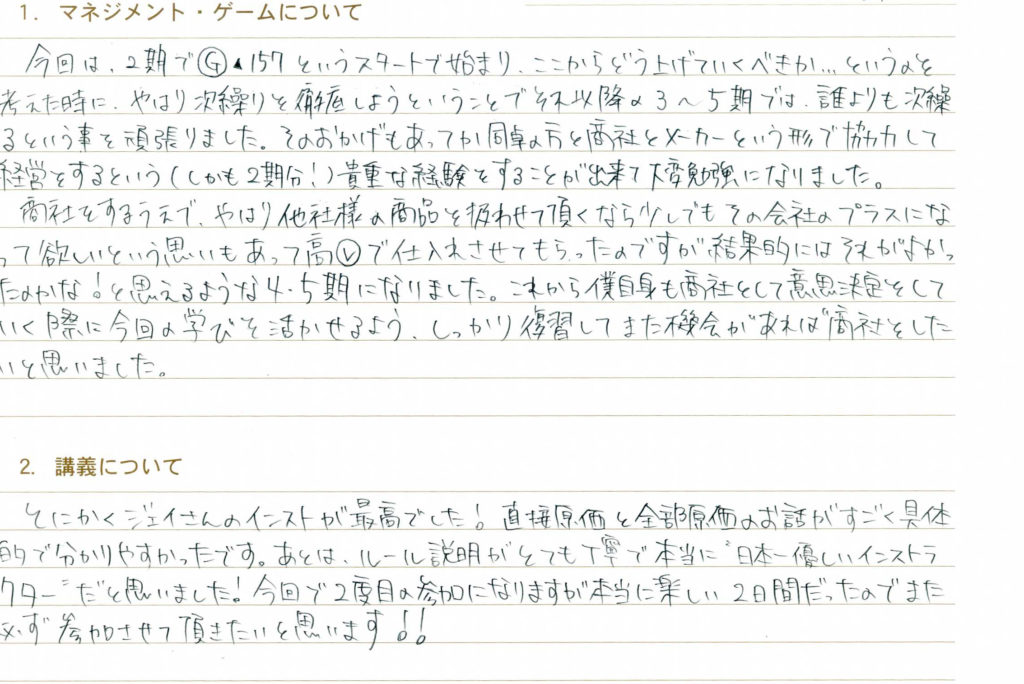 1. マネジメント・ゲームについて
今回は、2期でⒼ▲157というスタートで始まり、ここからどう上げていくべきか…というのを
考えた時に、やはり次繰りを徹底しようということでそれ以降の3〜5期では、誰よりも次繰
るという事を頑張りました。そのおかげもあってか同卓の方と商社とメーカーという形で協力して
経営をするという(しかも2期分!)貴重な経験をすることが出来て大変勉強になりました。
商社をするうえで、やはり他社様の商品を扱わせて頂くなら少しでもその会社のプラスにな
って欲しいという思いもあって高Ⓥで仕入れさせてもらったのですが結果的にはそれがよかっ
たのかな!と思えるような4・5期になりました。これから僕自身も商社として意思決定をして
いく際に今回の学びを活かせるよう、しっかり復習してまた機会があれば商社をした
いと思いました。
2. 講義について
とにかくジェイさんのインストが最高でした!直接原価と全部原価のお話がすごく具体
的で分かりやすかったです。あとは、ルール説明がとても丁寧で本当に"日本一優しいインストラ
クター"だと思いました!今回で2度目の参加になりますが本当に楽しい2日間だったのでまた
必ず参加させて頂きたいと思います!!